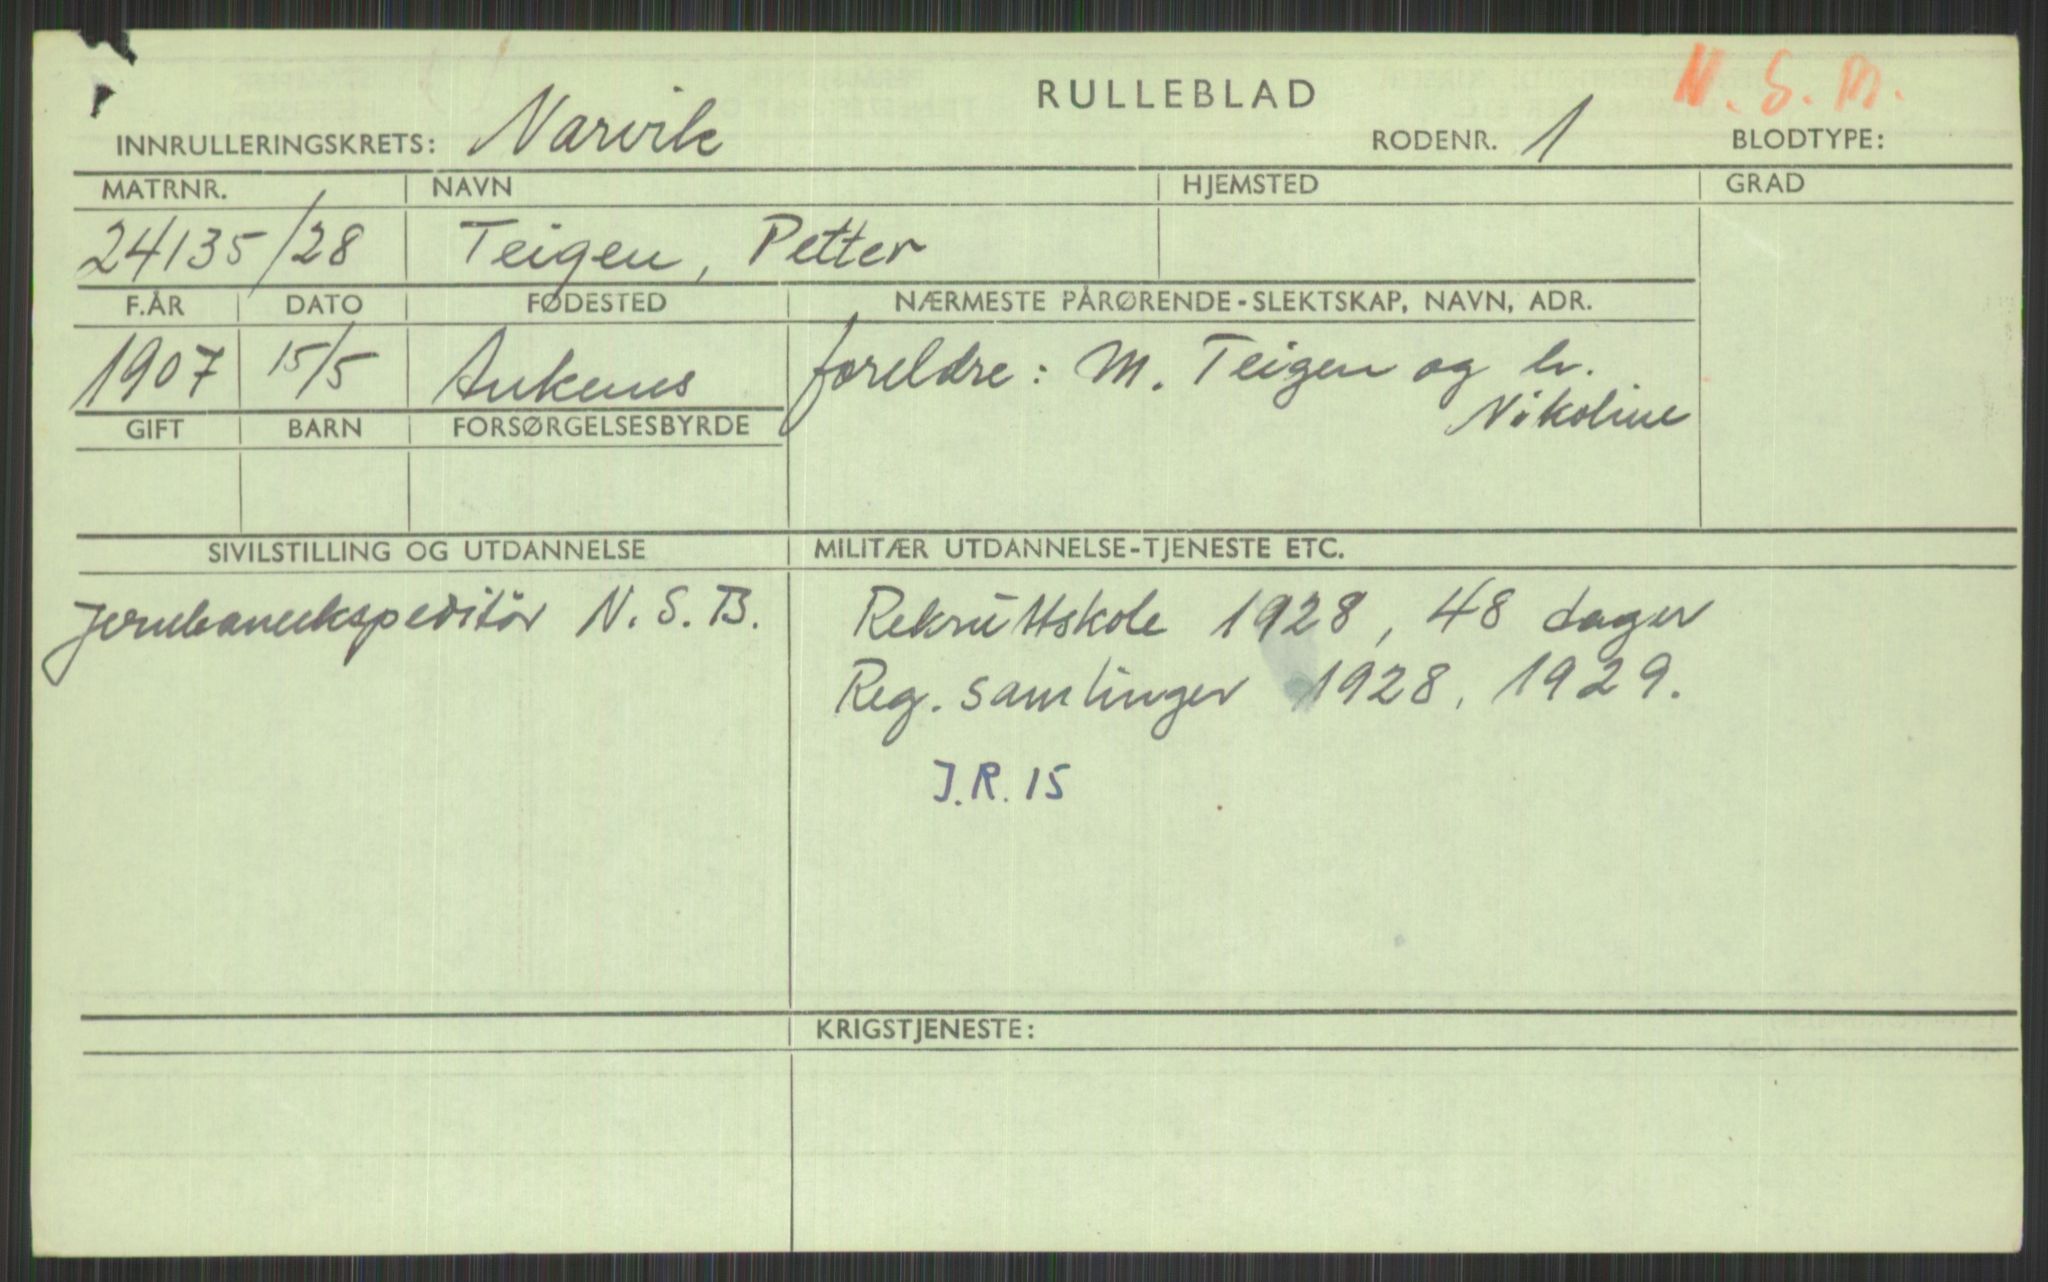 RULLEBLAD
N. S. M.
INNRULLERINGSKRETS: Narvik
RODENR. 1
BLODTYPE:
MATRNR. NAVN HJEMSTED GRAD
24135/28 Teigen, Petter
F.ÅR DATO FØDESTED NÆRMESTE PÅRØRENDE-SLEKTSKAP, NAVN, ADR.
1907 15/5 Ankenes foreldre: M. Teigen og h.
Nikoline
GIFT BARN FORSØRGELSESBYRDE
SIVILSTILLING OG UTDANNELSE MILITÆR UTDANNELSE-TJENESTE ETC.
Jernbaneekspeditör N. S. B. Rekruttskole 1928, 48 dager
Reg. samlinger 1928, 1929.
J.R. 15
KRIGSTJENESTE: